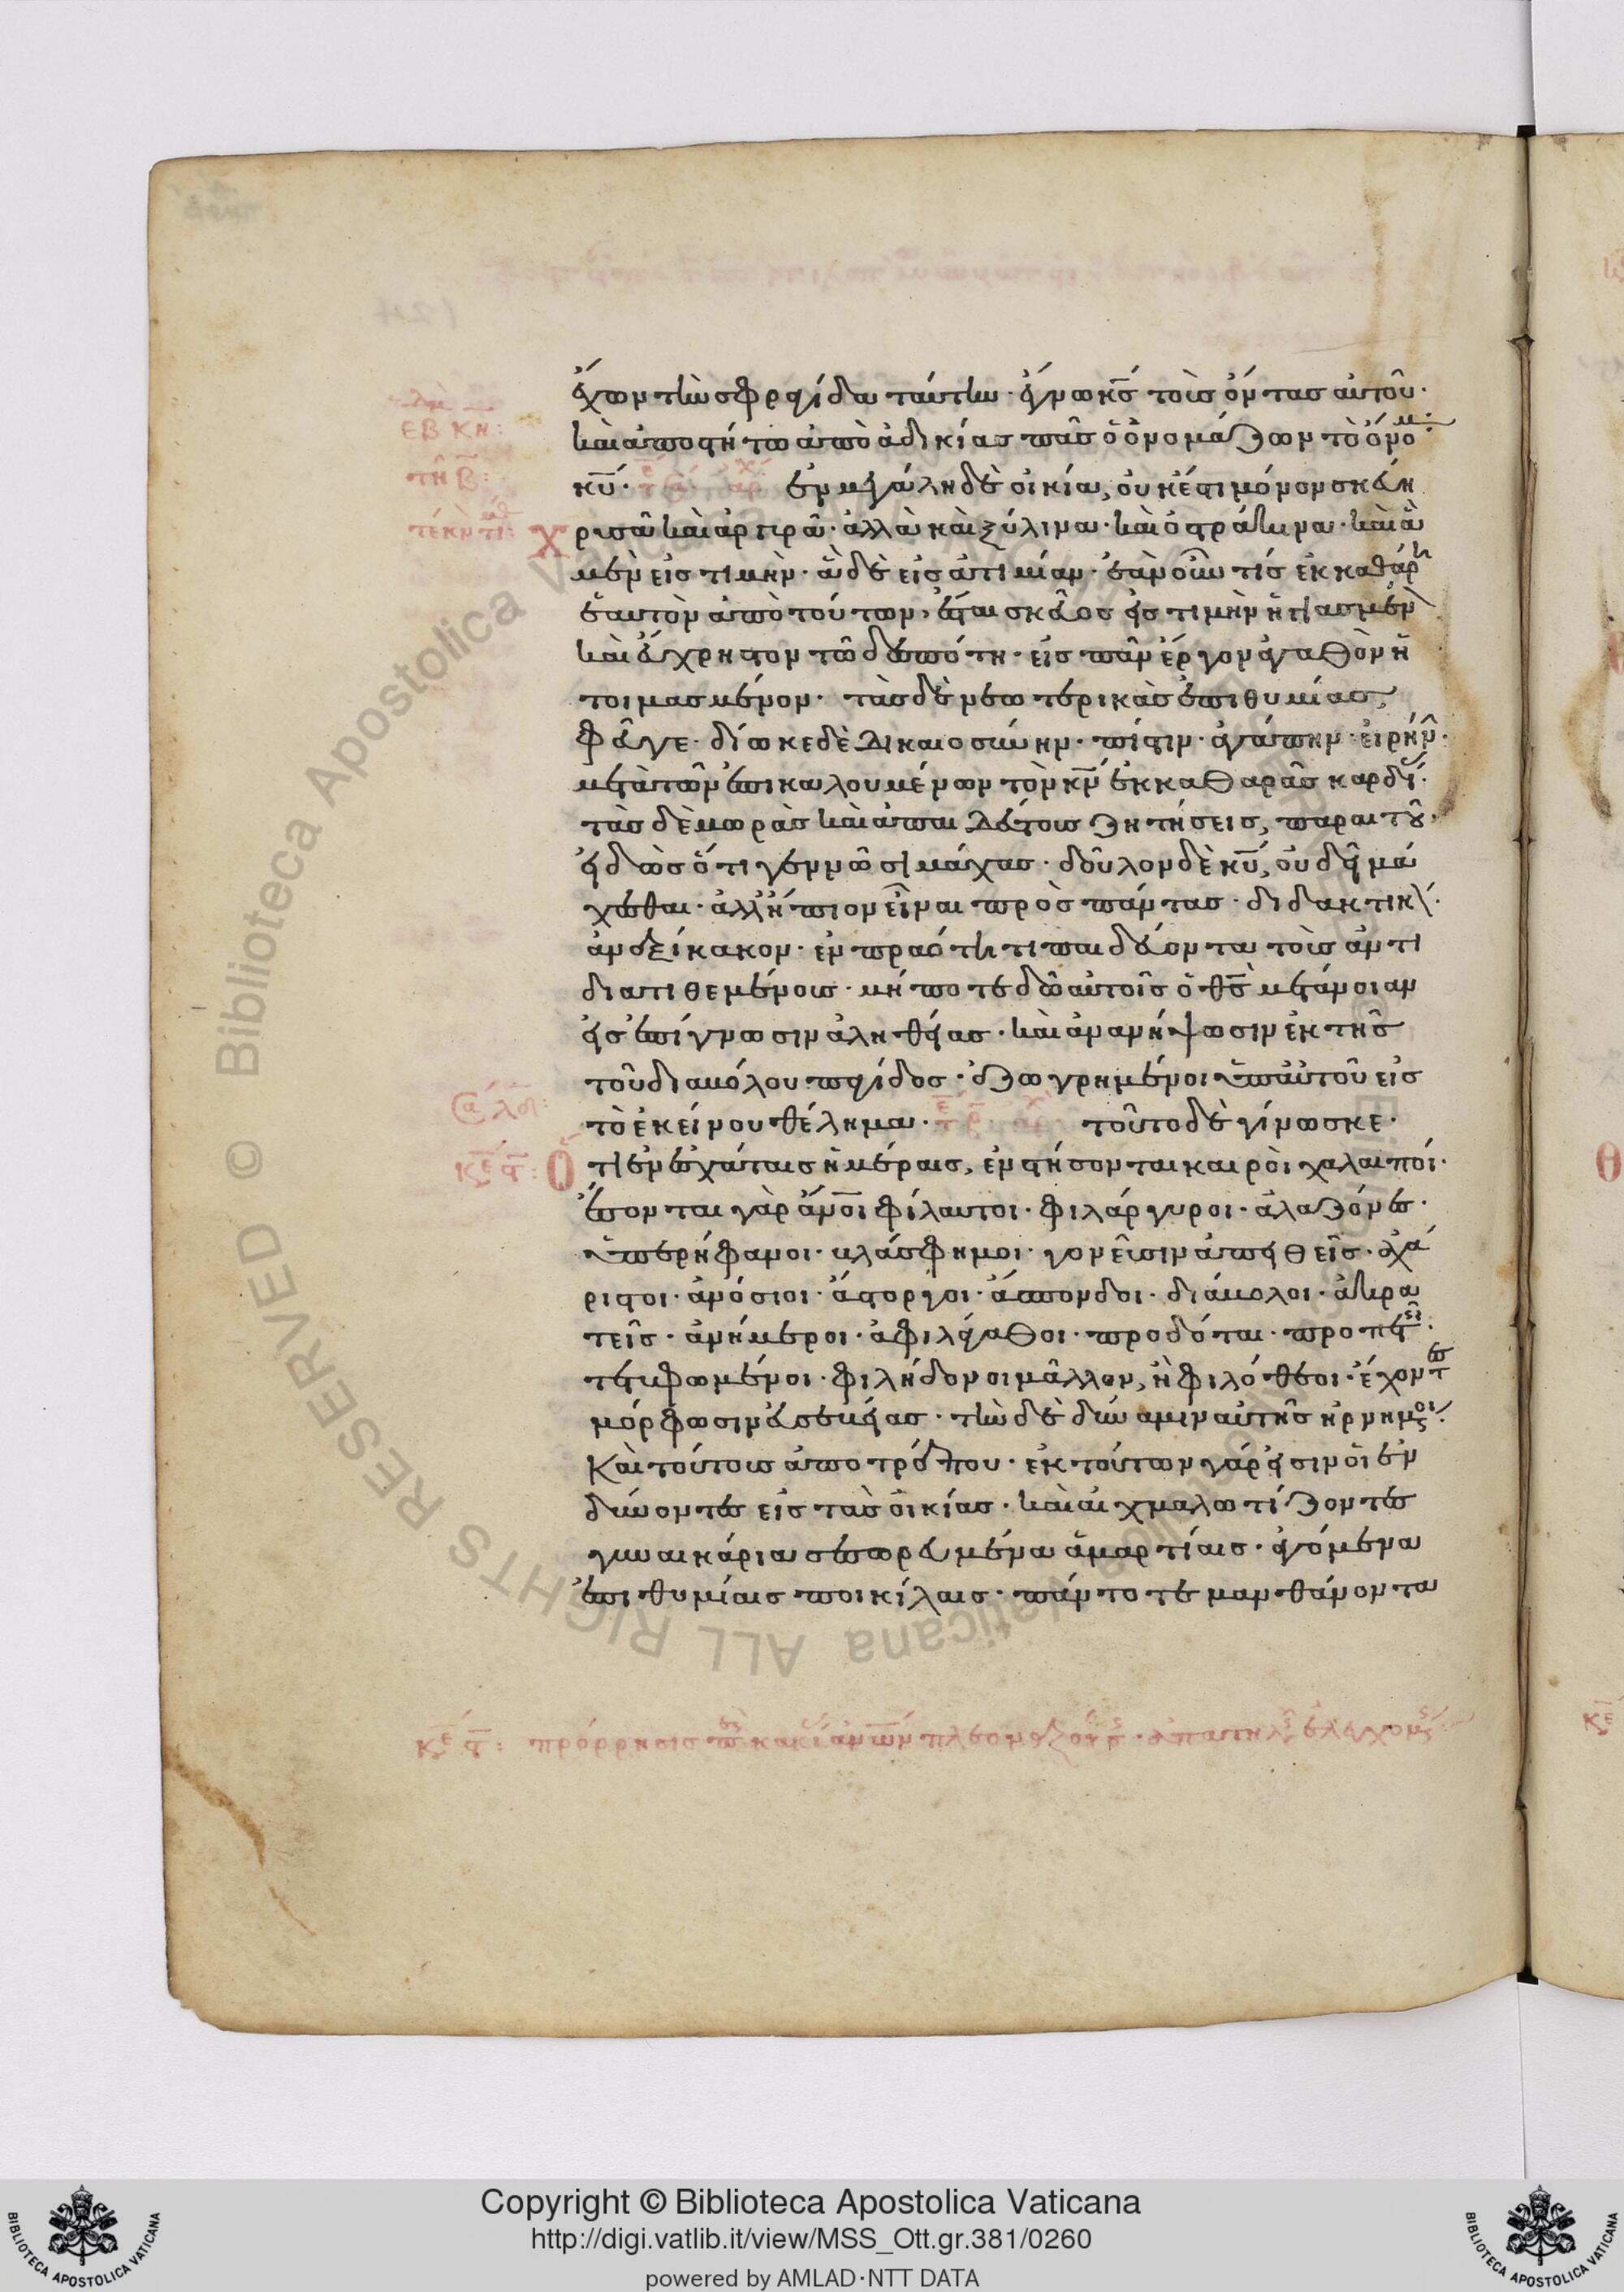 ἔχων τὴν σφραγίδα ταύτην· ἔγνω κ̅ς̅ τοὺς ὄντας αὐτοῦ·
καὶ ἀποστήτω ἀπὸ ἀδικίας πᾶς ὁ ὀνομάζων τὸ ὄνομ
κ̅υ̅· ἐν μεγάλη δὲ οἰκία, οὐκ έστι μόνον σκεύη
χρυσᾶ καὶ ἀργυρᾶ· ἀλλὰ καὶ ξύλινα· καὶ ὀστράκινα· καὶ ἃ
μὲν εἰς τιμὴν· ἃ δὲ εἰς ἀτιμίαν· ἐὰν οὖν τίς ἐκκαθάρη
ἑαυτὸν ἀπὸ τούτων, ἔσται σκεῦος εἰς τιμὴν ἡγιασμέν
καὶ εὔχρηστον τῶ δεσπότη· εἰς πᾶν ἔργον ἀγαθὸν ἡ
τοιμασμένον· τὰς δὲ νεωτερικὰς ἐπιθυμίας,
φεῦγε· δίωκε δὲ δικαιοσύνην· πίστιν· ἀγάπην· εἰρήν·
μετὰ τῶν ἐπικαλουμένων τὸν κ̅ν̅ ἐκ καθαρᾶς καρδί·
τὰς δὲ μωρὰς καὶ ἀπαιδεύτους ζητήσεις, παραιτοῦ·
εἰδὼς ὅτι γεννῶσι μάχας· δοῦλον δὲ κ̅υ̅, οὐ δεῖ μά
χεσθαι· ἀλλ' ἤπιον εἶναι πρὸς πάντας· διδακτικ·
ἀνεξίκακον· ἐν πραότητι παιδεύοντα τοὺς ἀντι
διατιθεμένους· μή ποτε δῶ αὐτοῖς ὁ θ̅ς̅ μετάνοιαν
εἰς ἐπίγνωσιν ἀληθείας· καὶ ἀνανήψωσιν ἐκ τῆς
τοῦ διαβόλου παγίδος· ἐζωγρημένοι ὑπ' αὐτοῦ εἰς
τὸ ἐκείνου θέλημα· τοῦτο δὲ γίνωσκε·
Ὅτι ἐν ἐσχάταις ἡμέραις, ἐνστήσονται καιροὶ χαλαιποί·
ἔσονται γὰρ ἄν̅οι φίλαυτοι· φιλάργυροι· ἀλαζόνες·
ὑπερήφανοι· βλάσφημοι· γονεῦσιν ἀπειθεῖς· ἀχά
ριστοι· ἀνόσιοι· ἄστοργοι· ἄσπονδοι· διάβολοι· ἀκρα
τεῖς· ἀνήμεροι· ἀφιλάγαθοι· προδόται· προπετεῖ·
τετυφωμένοι· φιλήδονοι μᾶλλον, ἢ φιλόθεοι· ἔχοντες
μόρφωσιν εὐσεβείας· τὴν δὲ δύναμιν αὐτῆς ἠρνημένοι·
Καὶ τούτους ἀποτρέπου· ἐκ τούτων γάρ εἰσιν οἱ ἐν
δύνοντες εἰς τὰς οἰκίας· καὶ αἰχμαλωτίζοντες
γυναικάρια σεσωρευμένα ἁμαρτίαις· ἀγόμενα
ἐπιθυμίαις ποικίλαις· πάντοτε μανθάνοντα
Copyright © Biblioteca Apostolica Vaticana
http://digi.vatlib.it/view/MSS_Ott.gr.381/0260
powered by AMLAD·NTT DATA